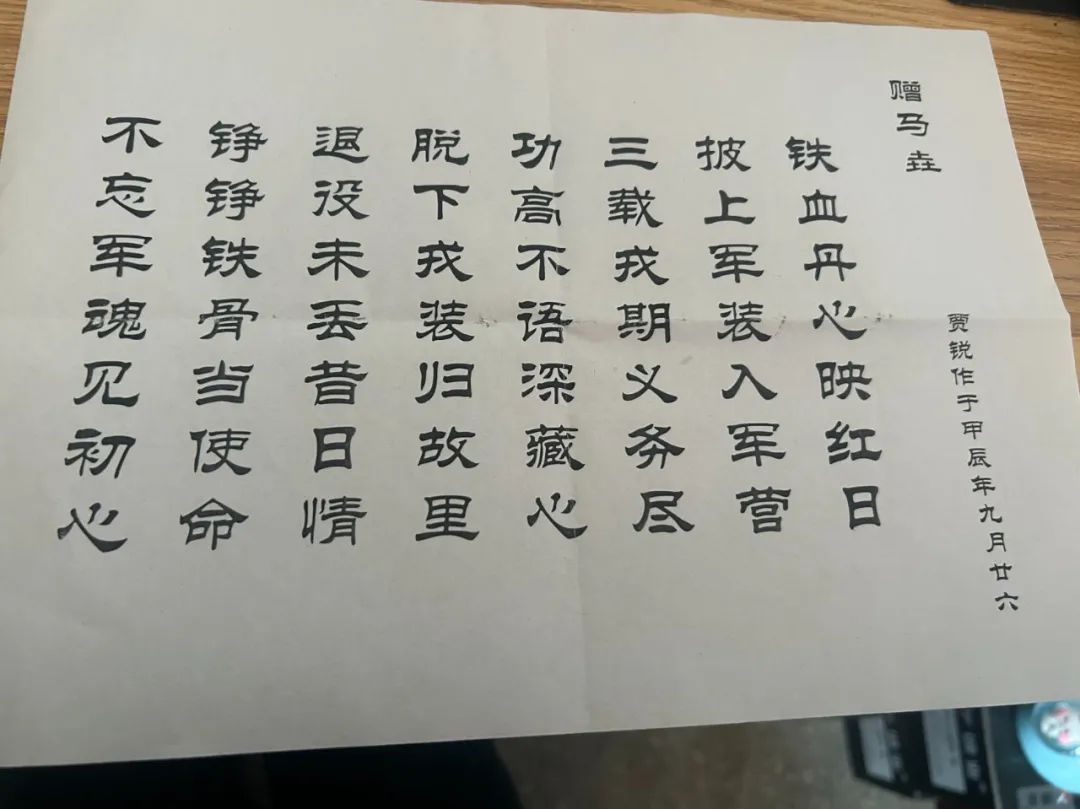 赠马垚
贾锐作于甲辰年九月廿六
铁血丹心映红日
披上军装入军营
三载戎期义务尽
功高不语深藏心
脱下戎装归故里
退役未丢昔日情
铮铮铁骨当使命
不忘军魂见初心